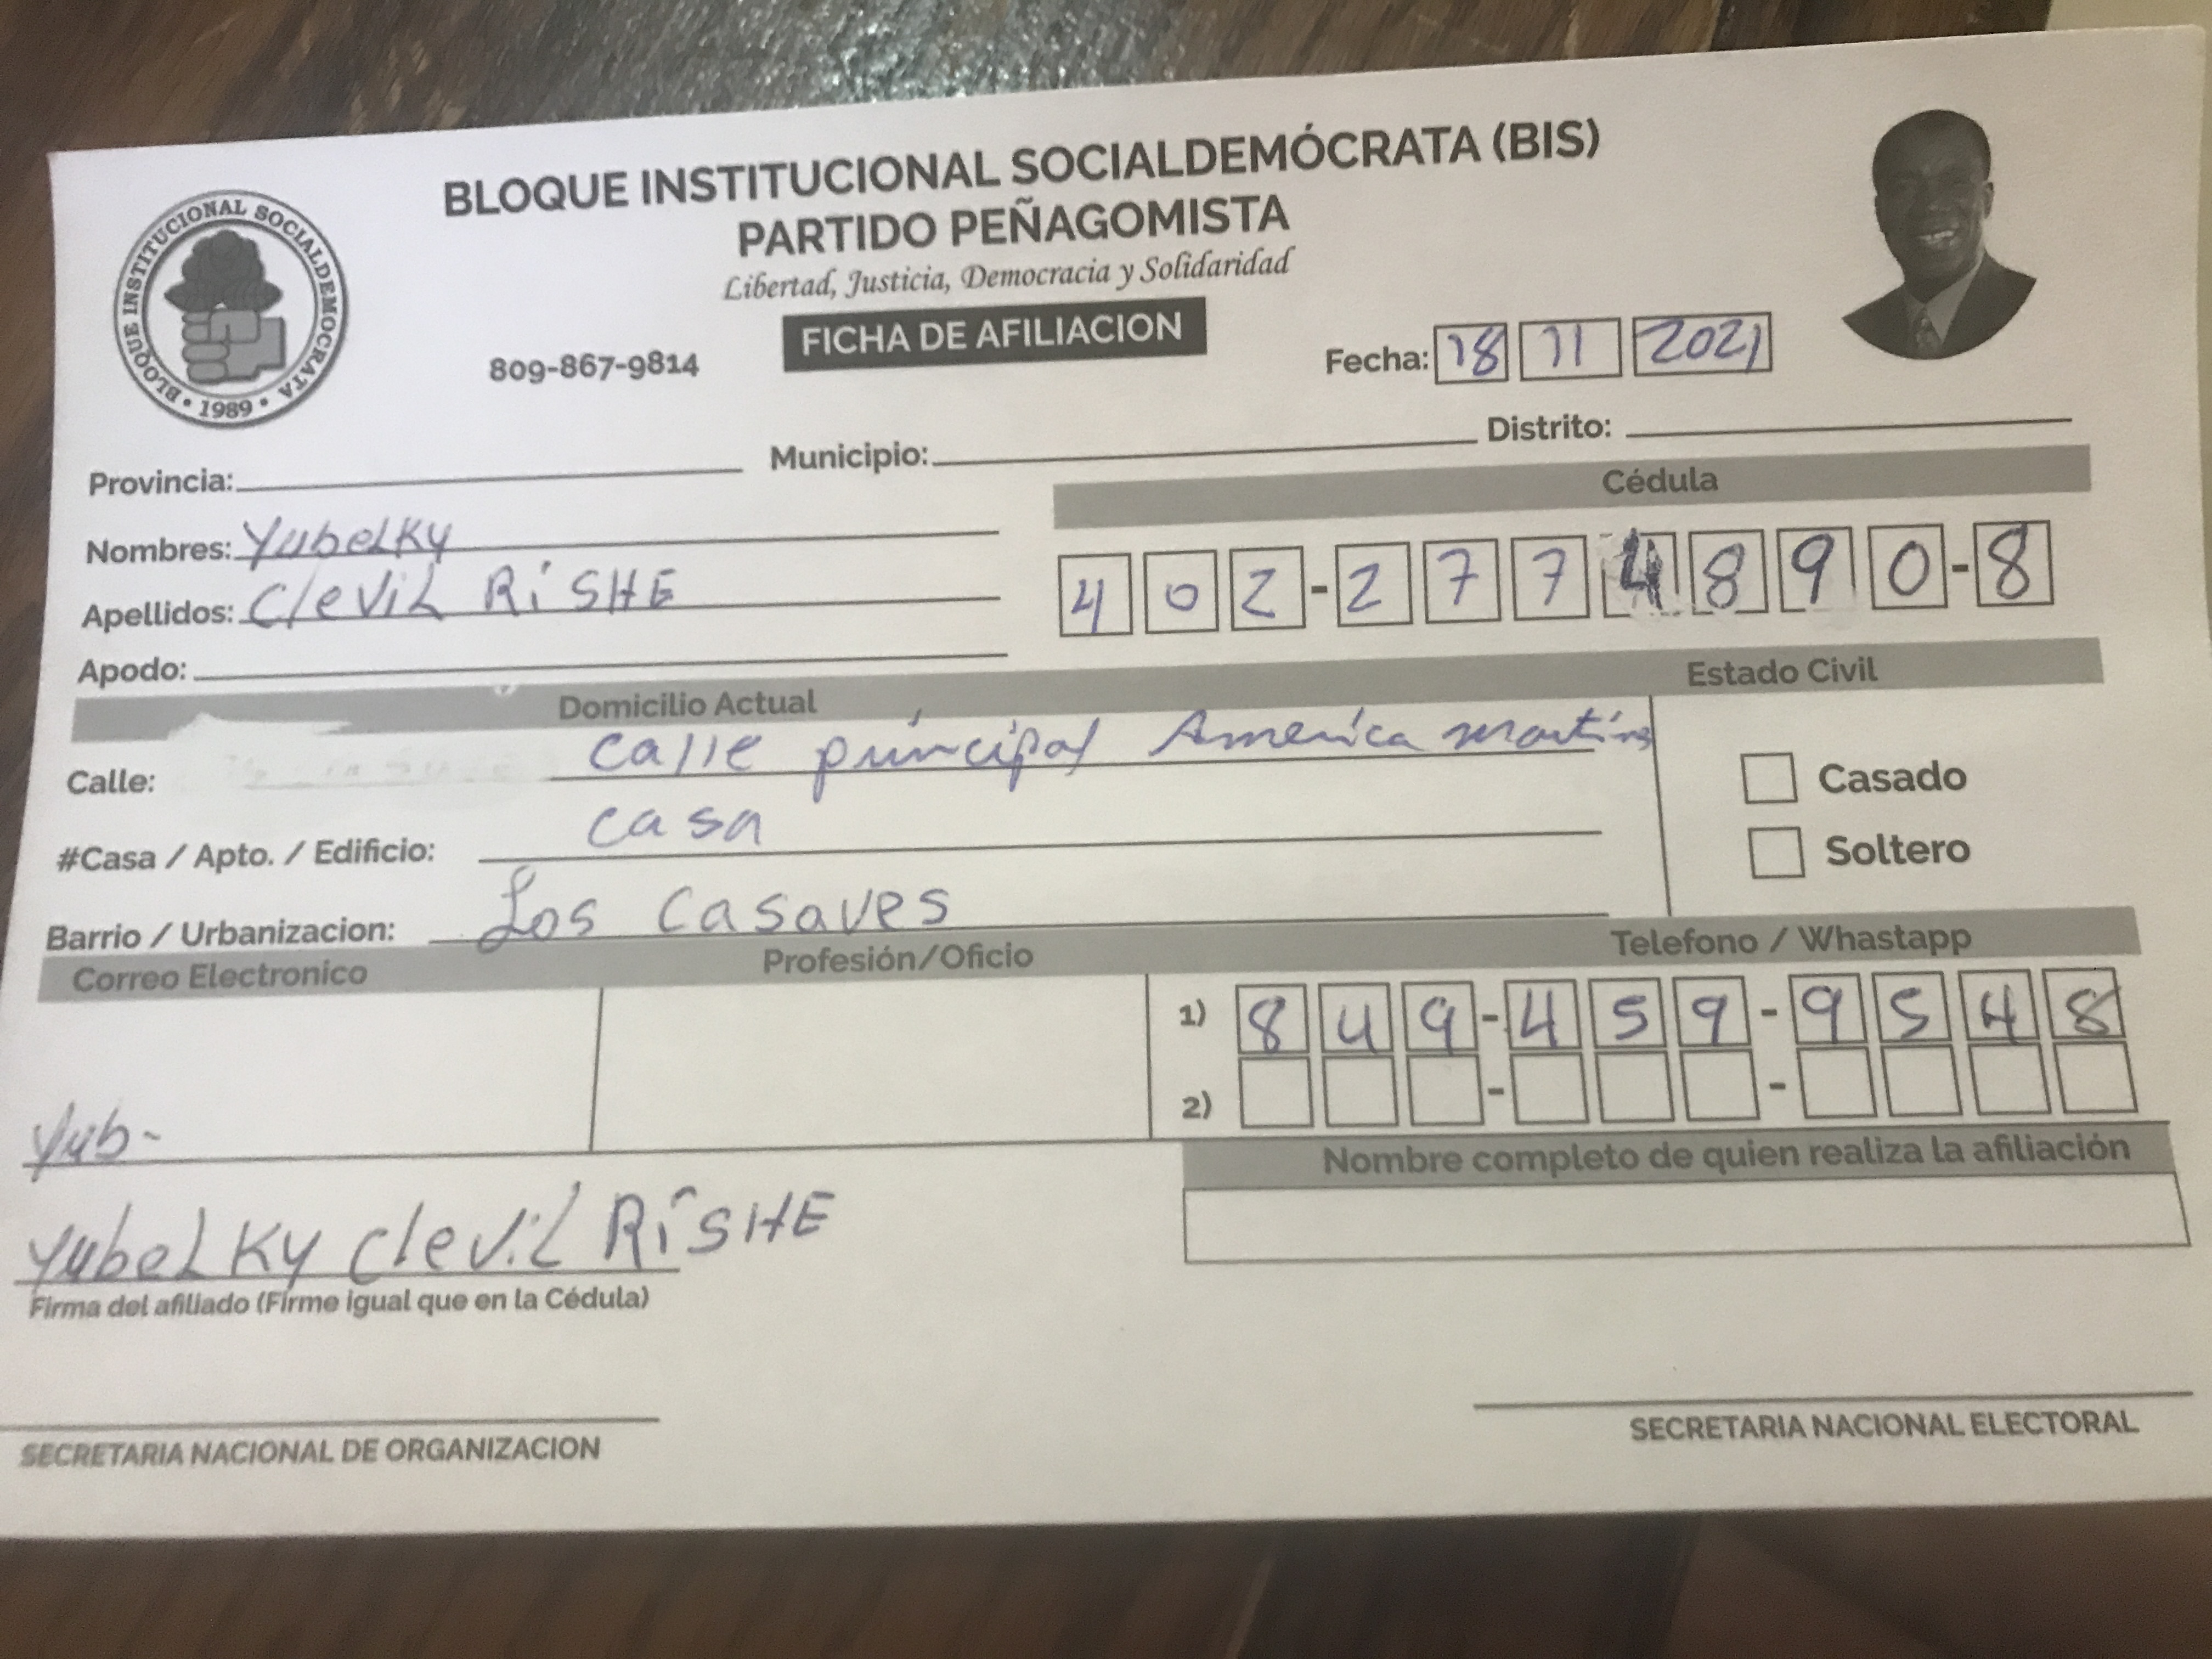 BLOQUE INSTITUCIONAL SOCIALDEMÓCRATA (BIS)
PARTIDO PEÑAGOMISTA
Libertad, Justicia, Democracia y Solidaridad
FICHA DE AFILIACION
BLOQUE INSTITUCIONAL SOCIALDEMOCRATA • 1989 •
809-867-9814
Fecha: 18 11 2021
Provincia: Municipio: Distrito:
Cédula
Nombres: YubeLKy
402-2774890-8
Apellidos: CleviL RiSHE
Apodo:
Domicilio Actual Estado Civil
Calle: calle principal America martinez
Casado
#Casa / Apto. / Edificio: casa
Soltero
Barrio / Urbanizacion: Los Casaves
Correo Electronico Profesión/Oficio Telefono / Whastapp
1) 849-459-9548
2) - -
Yub-
Nombre completo de quien realiza la afiliación
YubeLKy CleviL RiSHE
Firma del afiliado (Firme igual que en la Cédula)
SECRETARIA NACIONAL DE ORGANIZACION SECRETARIA NACIONAL ELECTORAL